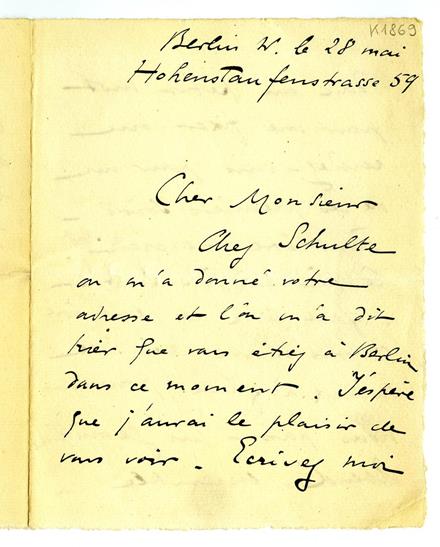 K1869
Berlin W. le 28 mai
Hohenstaufenstrasse 59
Cher Monsieur
Chez Schulte
on m'a donné votre
adresse et l'on m'a dit
hier que vous étiez à Berlin
dans ce moment. J'espère
que j'aurai le plaisir de
vous voir. Ecrivez moi